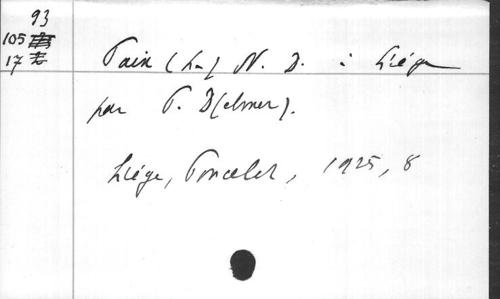 93
105
17
Paix (La) N. D. à Liége
par P. D(elmer).
Liége, Poncelet, 1925, 8